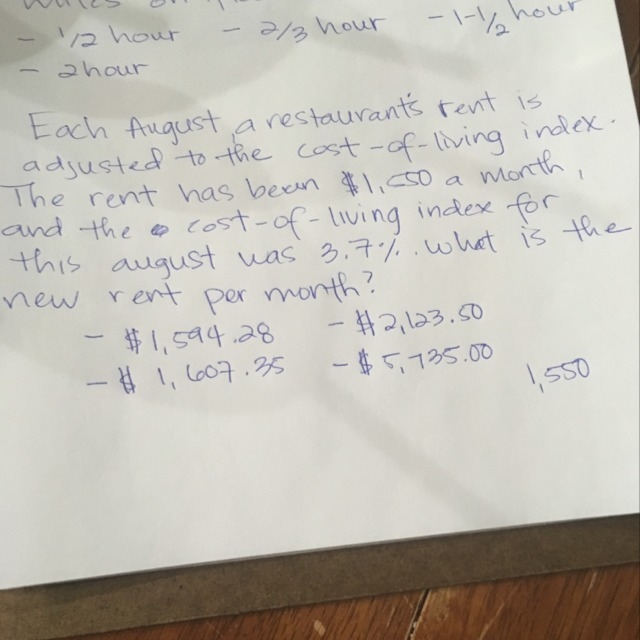 - 1/2 hour - 2/3 hour - 1-1/2 hour
- 2hour
Each August a restaurant's rent is
adjusted to the cost-of-living index.
The rent has been $1,550 a month,
and the cost-of-living index for
this august was 3.7%. what is the
new rent per month?
- $1,594.28 - $2,123.50
- $1,607.35 - $5,735.00 1,550